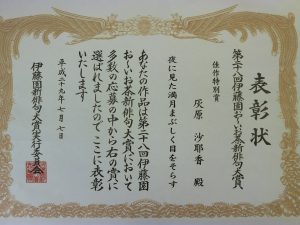 表彰状
第二十八回伊藤園お~いお茶新俳句大賞
佳作特別賞
灰原 沙耶香 殿
夜に見た満月まぶしく目をそらす
あなたの作品は第二十八回伊藤園
お~いお茶新俳句大賞において
多数の応募の中から右の賞に
選ばれましたのでここに表彰
いたします
平成二十九年七月七日
伊藤園新俳句大賞実行委員会